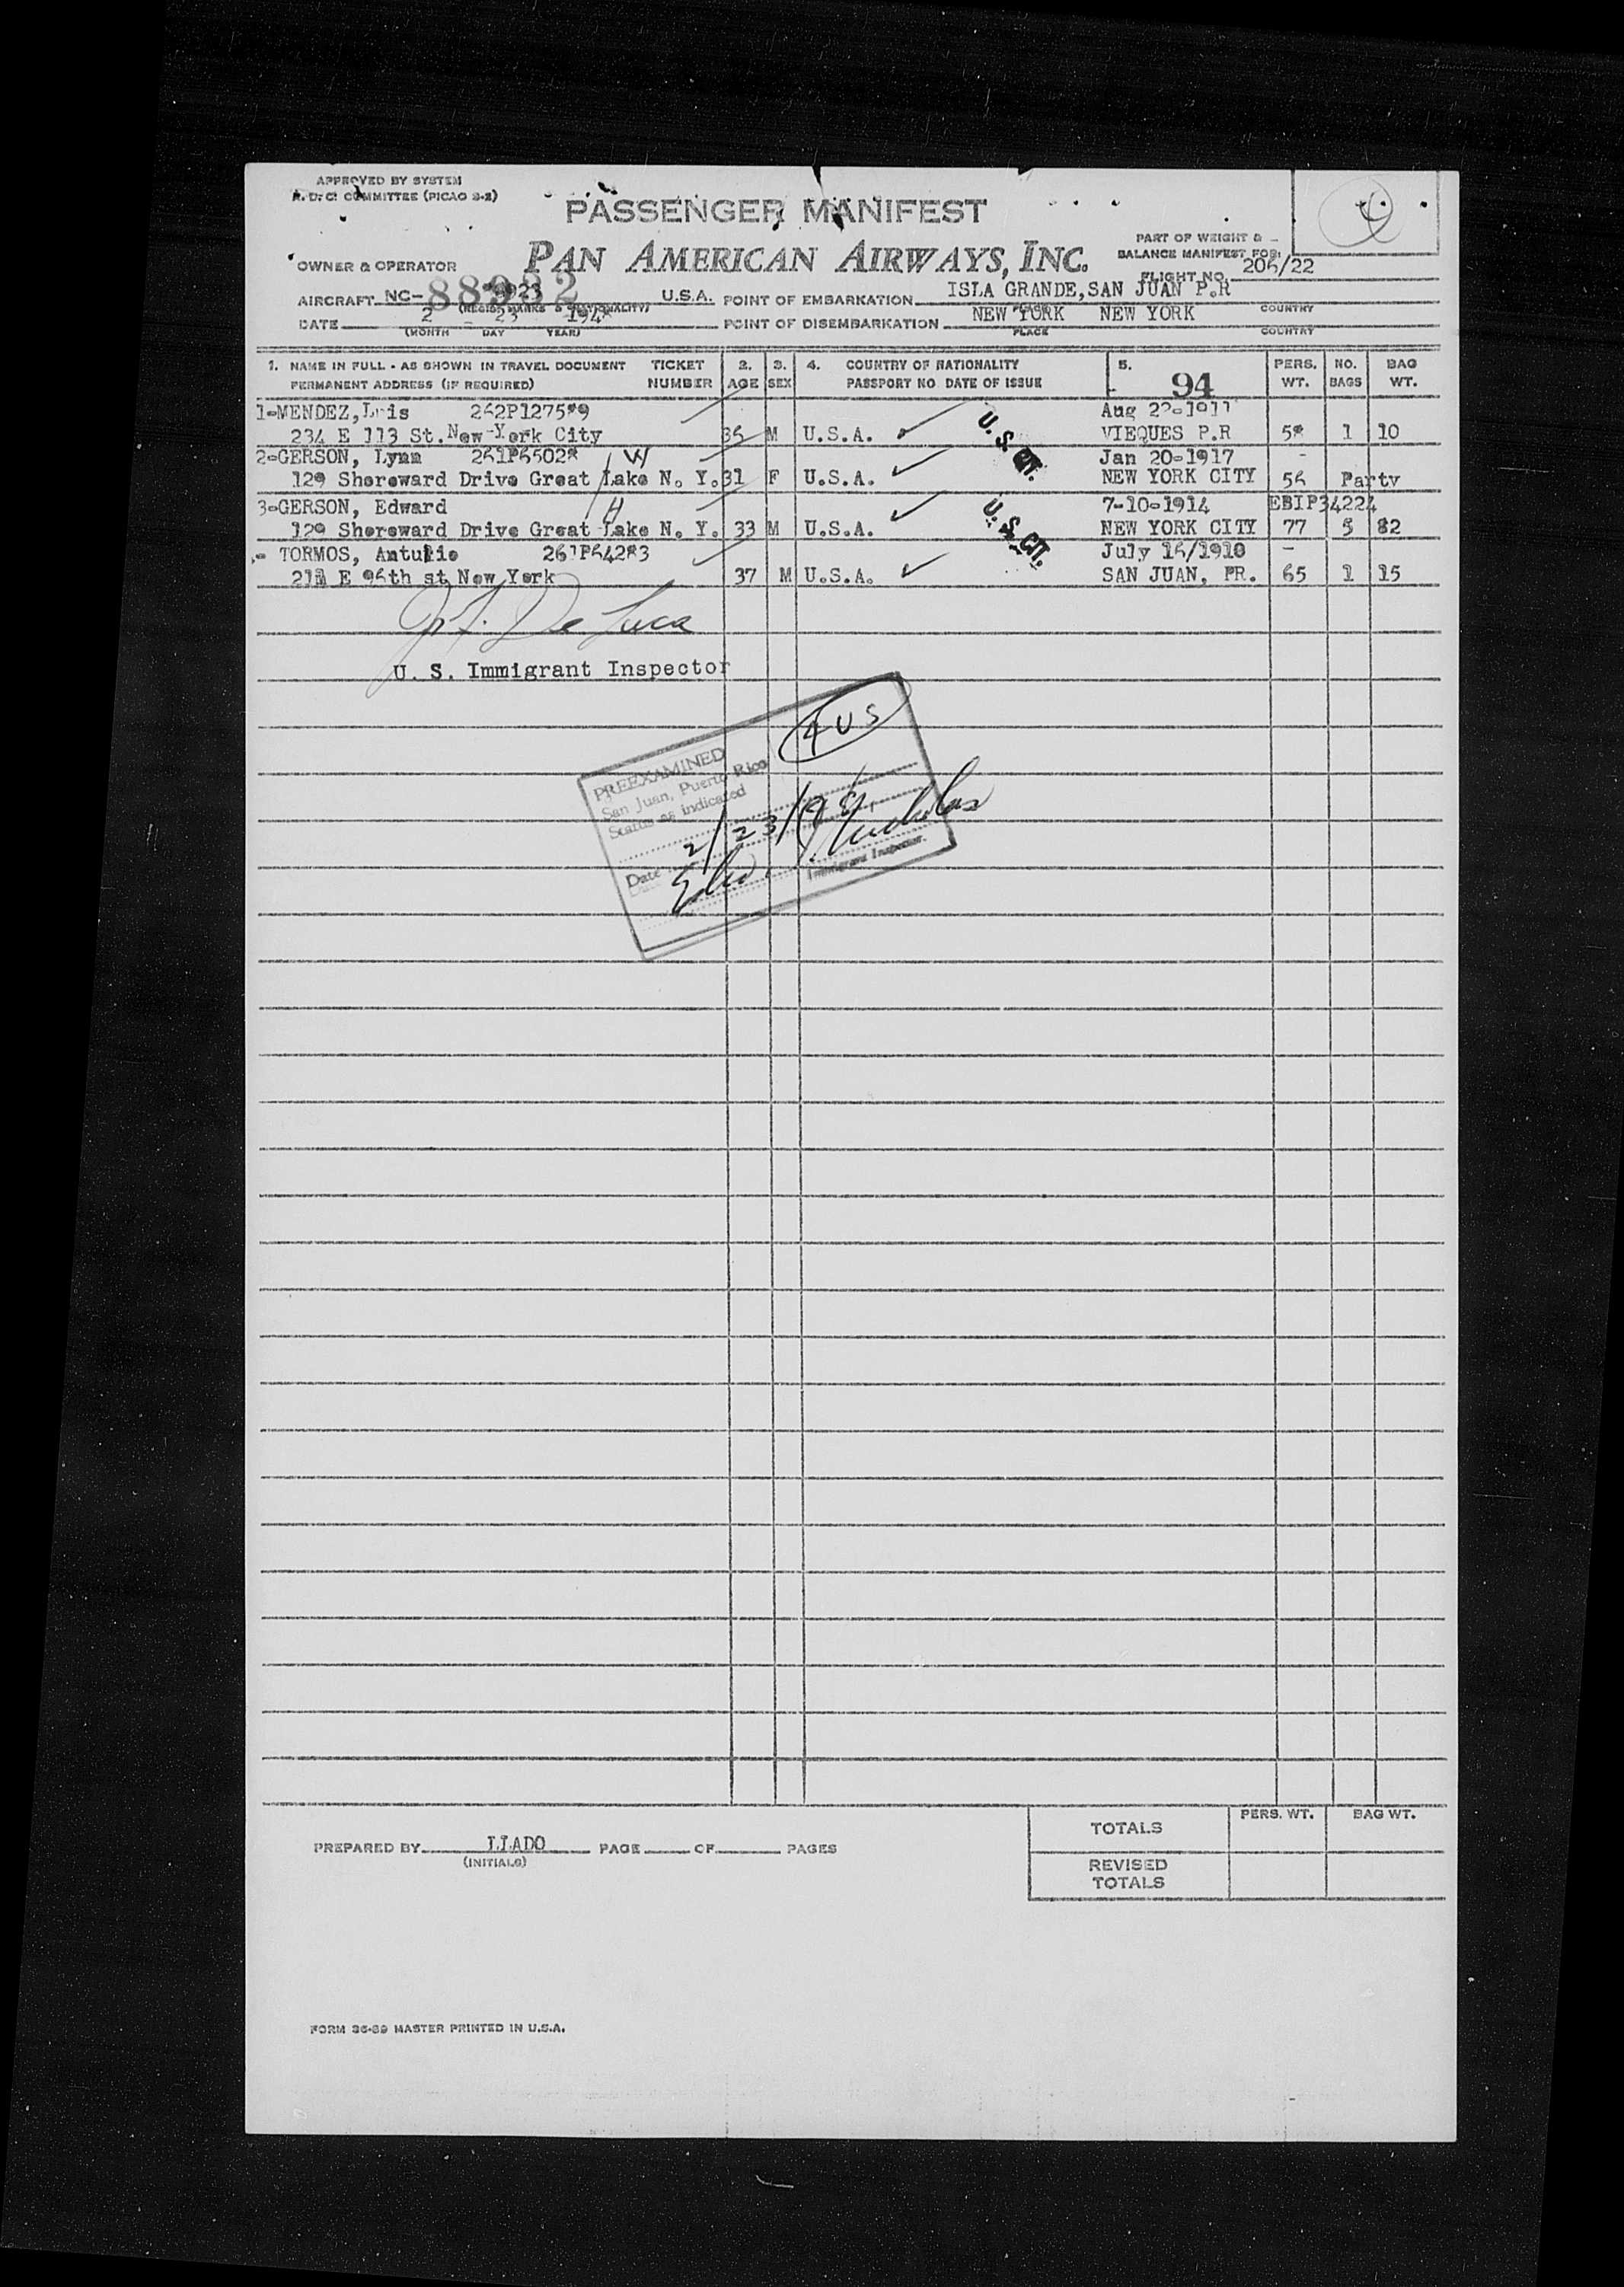 APPROVED BY SYSTEM
A. D. C. COMMITTEE (PICAO 3-2)
PASSENGER MANIFEST
PART OF WEIGHT &
OWNER & OPERATOR PAN AMERICAN AIRWAYS, INC. BALANCE MANIFEST FOR:
FLIGHT NO. 206/22
AIRCRAFT NC- U.S.A. POINT OF EMBARKATION ISLA GRANDE, SAN JUAN P.R
PLACE COUNTRY
DATE 2 23 1948 POINT OF DISEMBARKATION NEW YORK NEW YORK
(MONTH DAY YEAR) PLACE COUNTRY
1. NAME IN FULL - AS SHOWN IN TRAVEL DOCUMENT TICKET 2. 3. 4. COUNTRY OF NATIONALITY 5. PERS. NO. BAG
PERMANENT ADDRESS (IF REQUIRED) NUMBER AGE SEX PASSPORT NO DATE OF ISSUE 94 WT. BAGS WT.
1-MENDEZ, Luis 262P127589 Aug 22-1911
234 E 113 St. New York City M U.S.A. U.S. CIT. VIEQUES P.R 58 1 10
2-GERSON, Lynn 261P65028 W Jan 20-1917
129 Shoreward Drive Great Lake N. Y. 31 F U.S.A. NEW YORK CITY 56 Party
3-GERSON, Edward H 7-10-1914 EBIP34224
129 Shoreward Drive Great Lake N. Y. 33 M U.S.A. U.S. CIT. NEW YORK CITY 77 5 82
- TORMOS, Antulio 261P64283 July 16/1910
E 96th st New York 37 M U.S.A. SAN JUAN, PR. 65 1 15
De Luca
U. S. Immigrant Inspector
4 US
PREEXAMINED
San Juan, Puerto Rico
Status as indicated
Date 2/23/48
Nicholas
Immigrant Inspector.
TOTALS PERS. WT. BAG WT.
PREPARED BY LLADO PAGE OF PAGES
(INITIALS)
REVISED
TOTALS
FORM 36-89 MASTER PRINTED IN U.S.A.